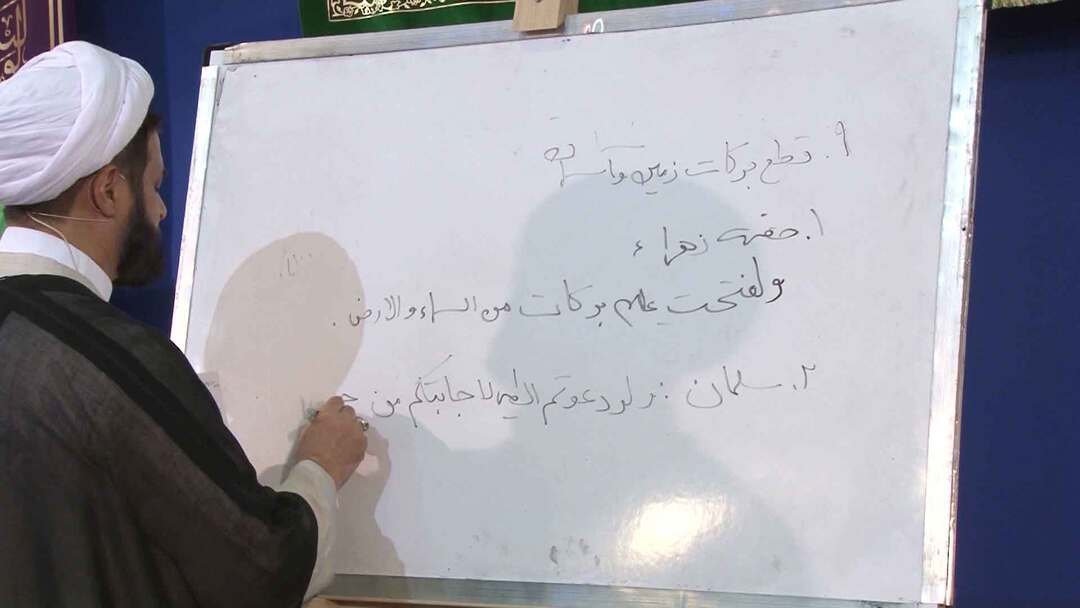 ۹. قطع برکات زمین و آسمان
۱. خطبه زهراء
و لفتحت علیهم برکات من السماء و الارض.
۲. سلمان: و لو دعوتم الطیر لاجابتکم من